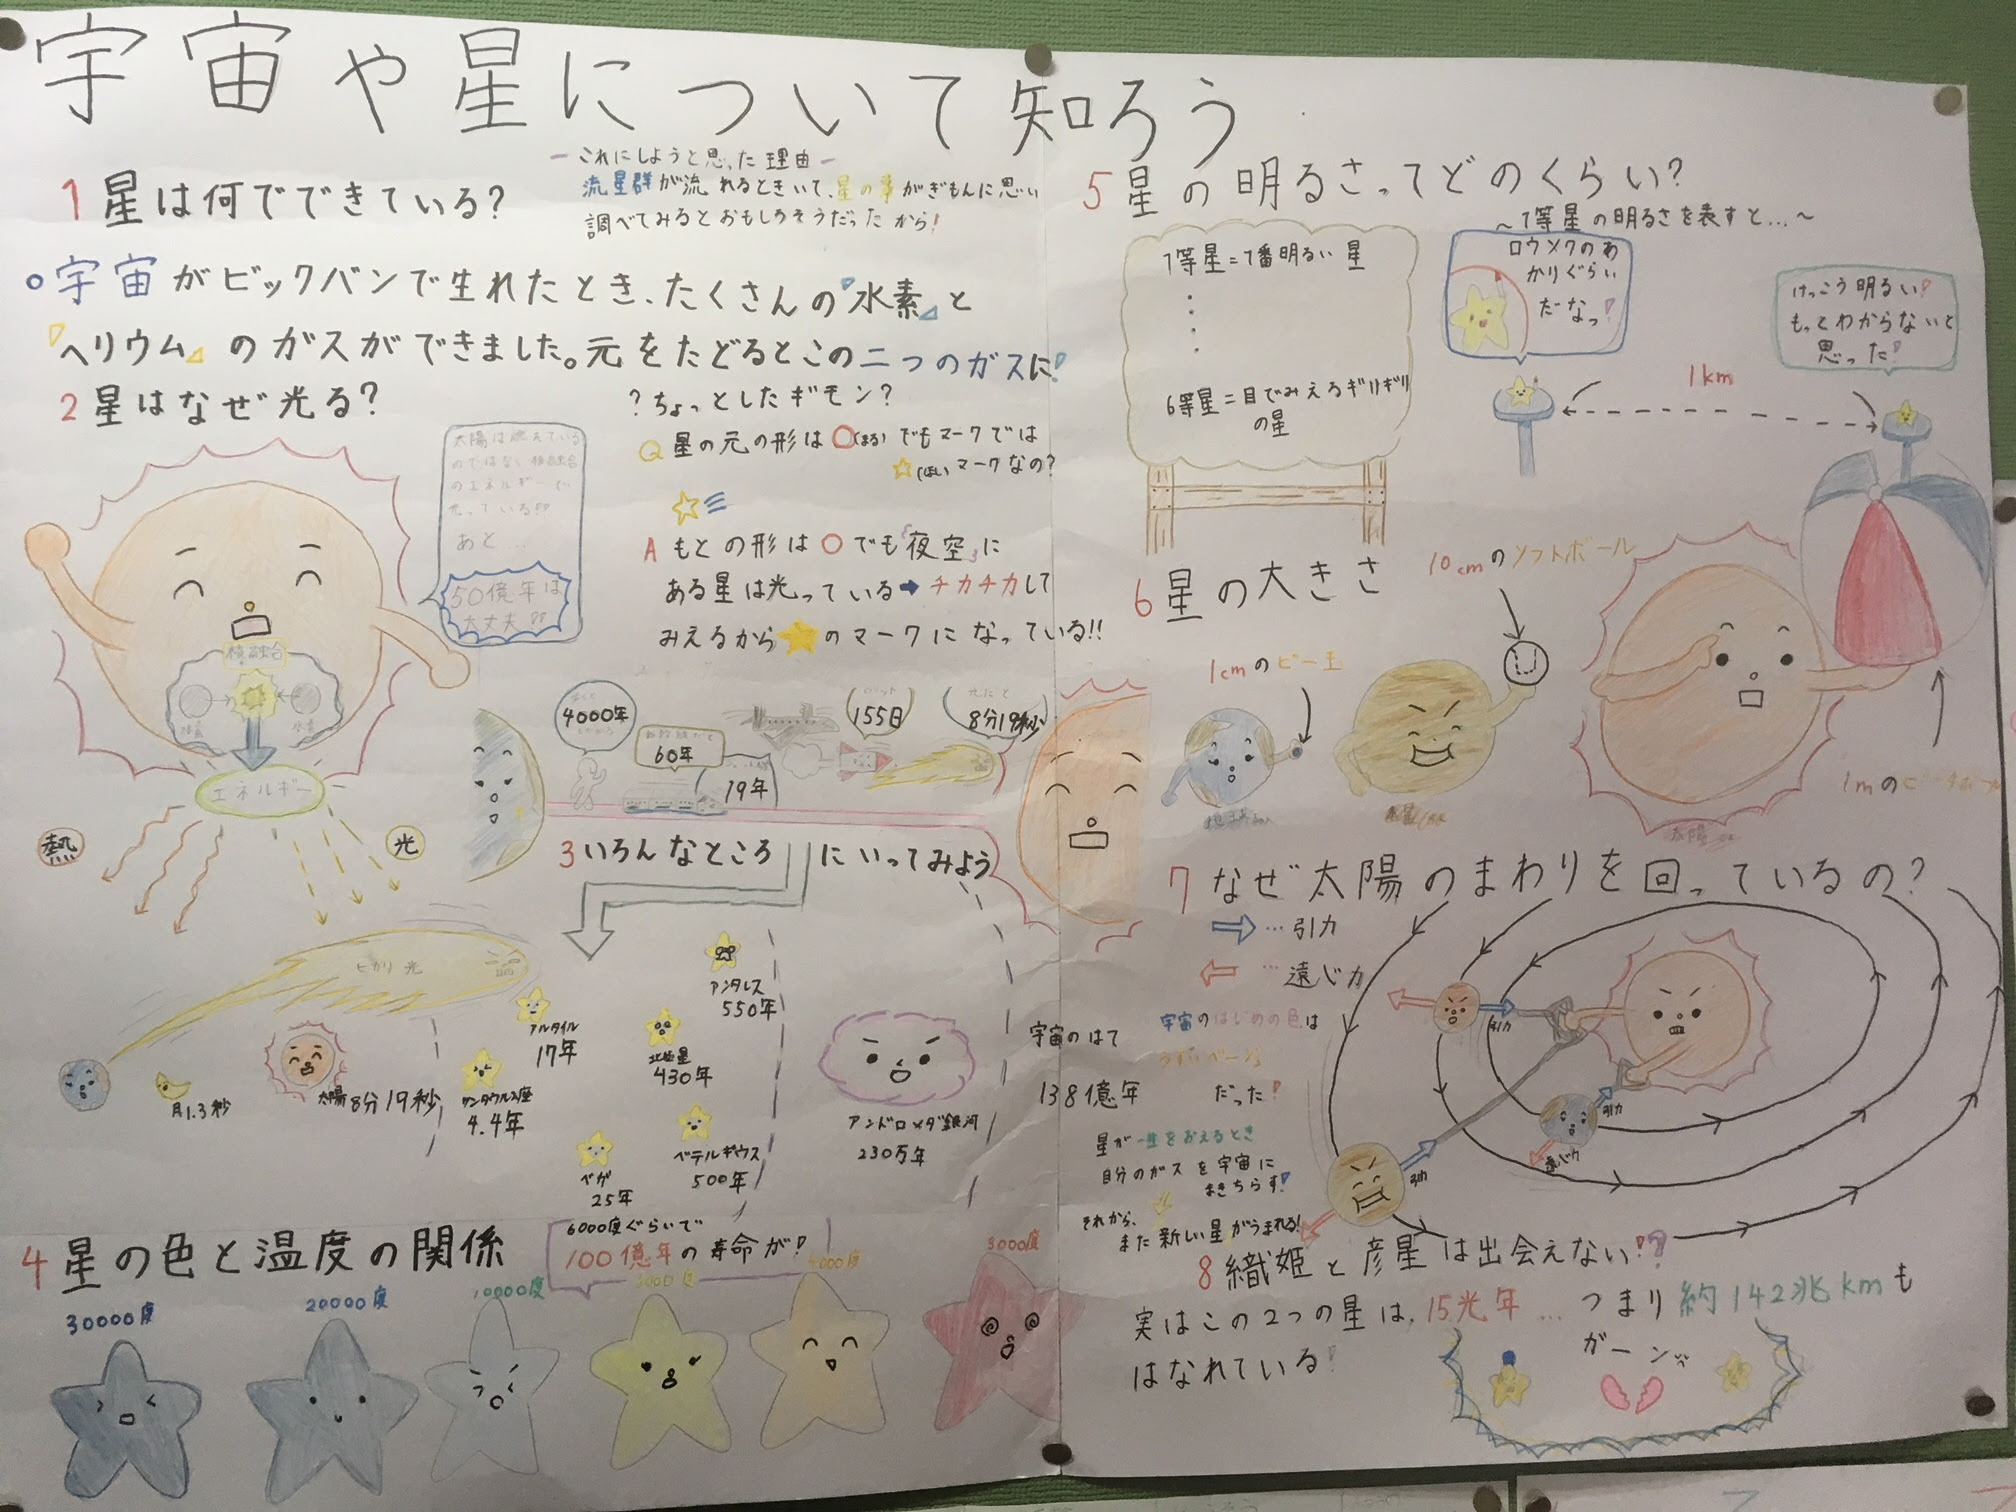 宇宙や星について知ろう
ーこれにしようと思った理由ー
流星群が流れるときいて、星の事がぎもんに思い
調べてみるとおもしろそうだったから!
1 星は何でできている?
○宇宙がビックバンで生れたとき、たくさんの『水素』と
『ヘリウム』のガスができました。元をたどるとこの二つのガスに!
2 星はなぜ光る?
太陽は燃えている
のではなく核融合
のエネルギーで
光っている!!
あと…
50億年は
大丈夫!!
核融合
水素
水素
エネルギー
熱
光
?ちょっとしたギモン?
Q 星の元の形は○(まる)でもマークでは
☆(ほし)マークなの?
A もとの形は○でも「夜空」に
ある星は光っている➡チカチカして
みえるから★のマークになっている!!
4000年
60年
19年
155日
8分19秒
3 いろんなところにいってみよう
ヒカリ光
月1.3秒
太陽8分19秒
ケンタウルス座
4.4年
アルタイル
17年
ベガ
25年
北極星
430年
アンタレス
550年
ベテルギウス
500年
アンドロメダ銀河
230万年
宇宙のはて
138億年
4 星の色と温度の関係
6000度ぐらいで
100億年の寿命が!
30000度
20000度
10000度
4000度
3000度
5 星の明るさってどのくらい?
～1等星の明るさを表すと…～
1等星=1番明るい星
6等星=目でみえるギリギリ
の星
ロウソクのあ
かりぐらい
だなっ!
けっこう明るい!
もっとわからないと
思った!
1km
6 星の大きさ
1cmのビー玉
10cmのソフトボール
1mのビーチボール
地球
太陽
7 なぜ太陽のまわりを回っているの?
…引力
…遠心力
引力
引力
遠心力
引力
宇宙のはじめの色は
うすいベージュ
だった!
星が一生をおえるとき
自分のガスを宇宙に
まきちらす!
それから、
また新しい星がうまれる!
8 織姫と彦星は出会えない!?
実はこの2つの星は、15光年…つまり約142兆kmも
はなれている!
ガーン